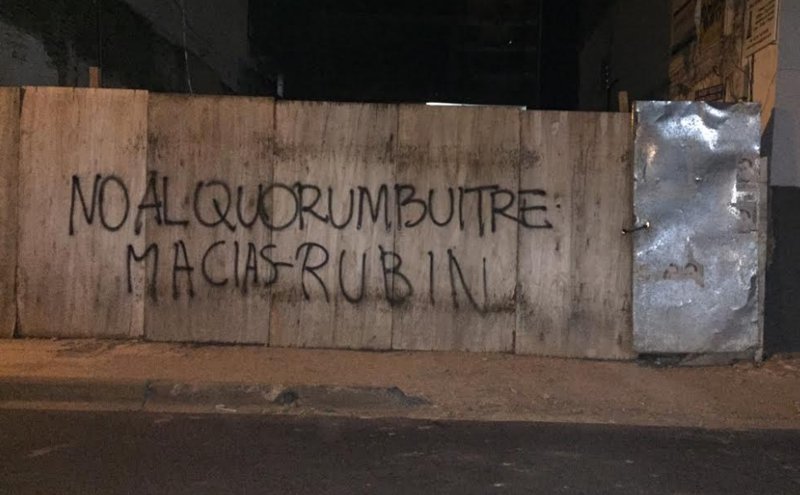 NO AL QUORUM BUITRE:
MACIAS-RUBIN